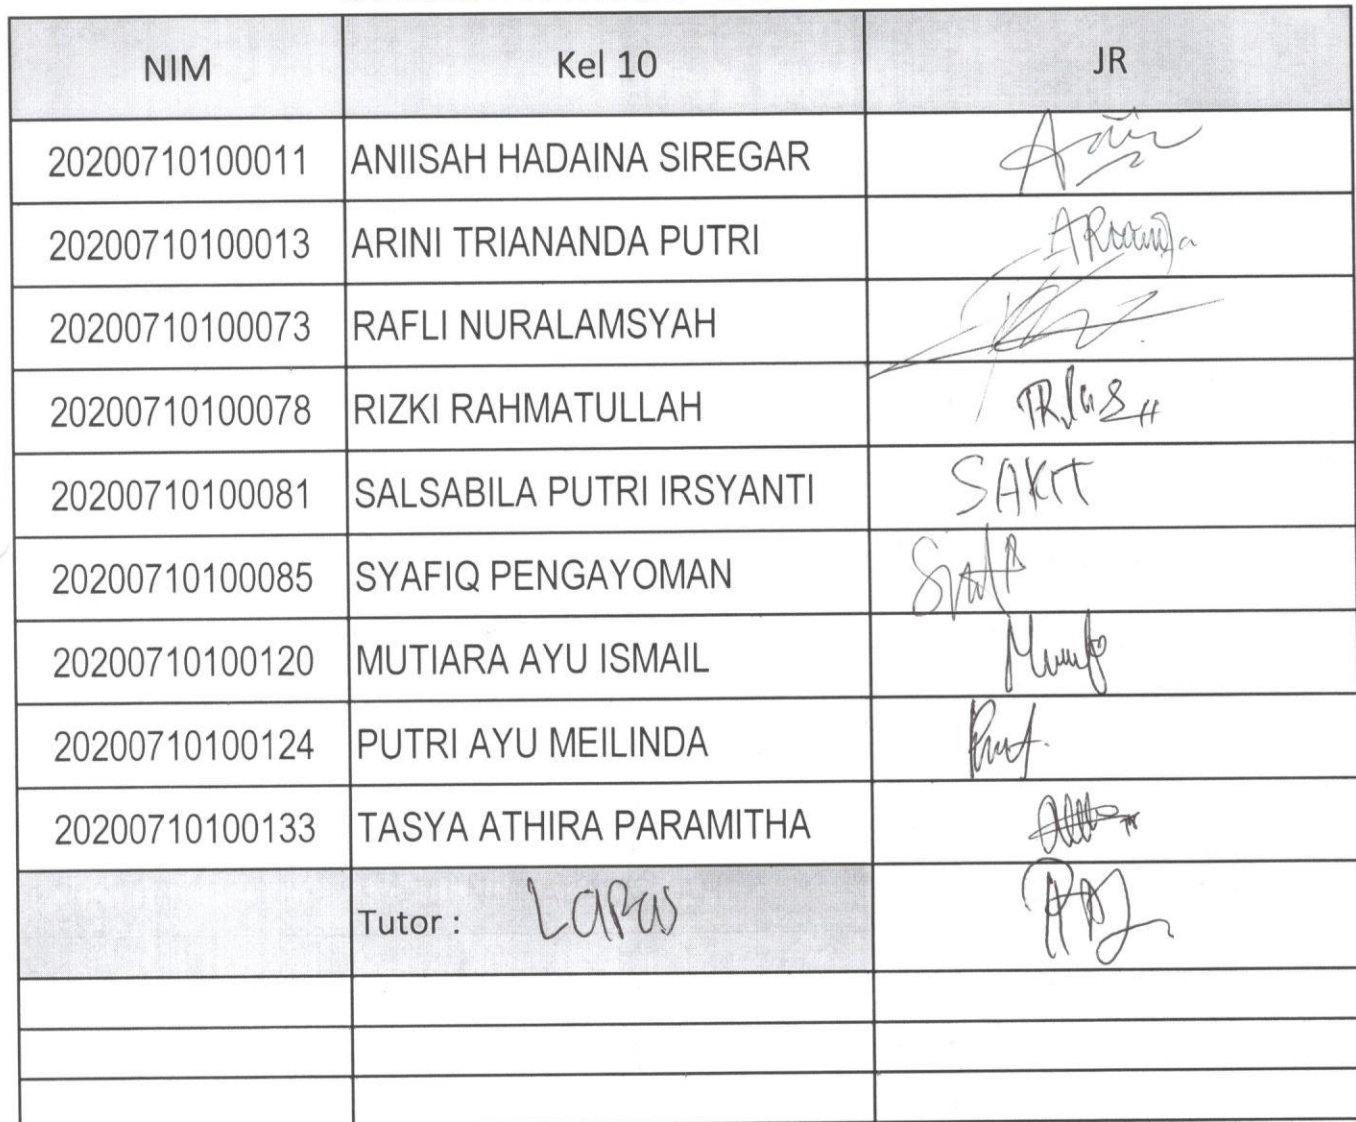 NIM Kel 10 JR
20200710100011 ANIISAH HADAINA SIREGAR
20200710100013 ARINI TRIANANDA PUTRI
20200710100073 RAFLI NURALAMSYAH
20200710100078 RIZKI RAHMATULLAH
20200710100081 SALSABILA PUTRI IRSYANTI SAKIT
20200710100085 SYAFIQ PENGAYOMAN
20200710100120 MUTIARA AYU ISMAIL
20200710100124 PUTRI AYU MEILINDA
20200710100133 TASYA ATHIRA PARAMITHA
Tutor :